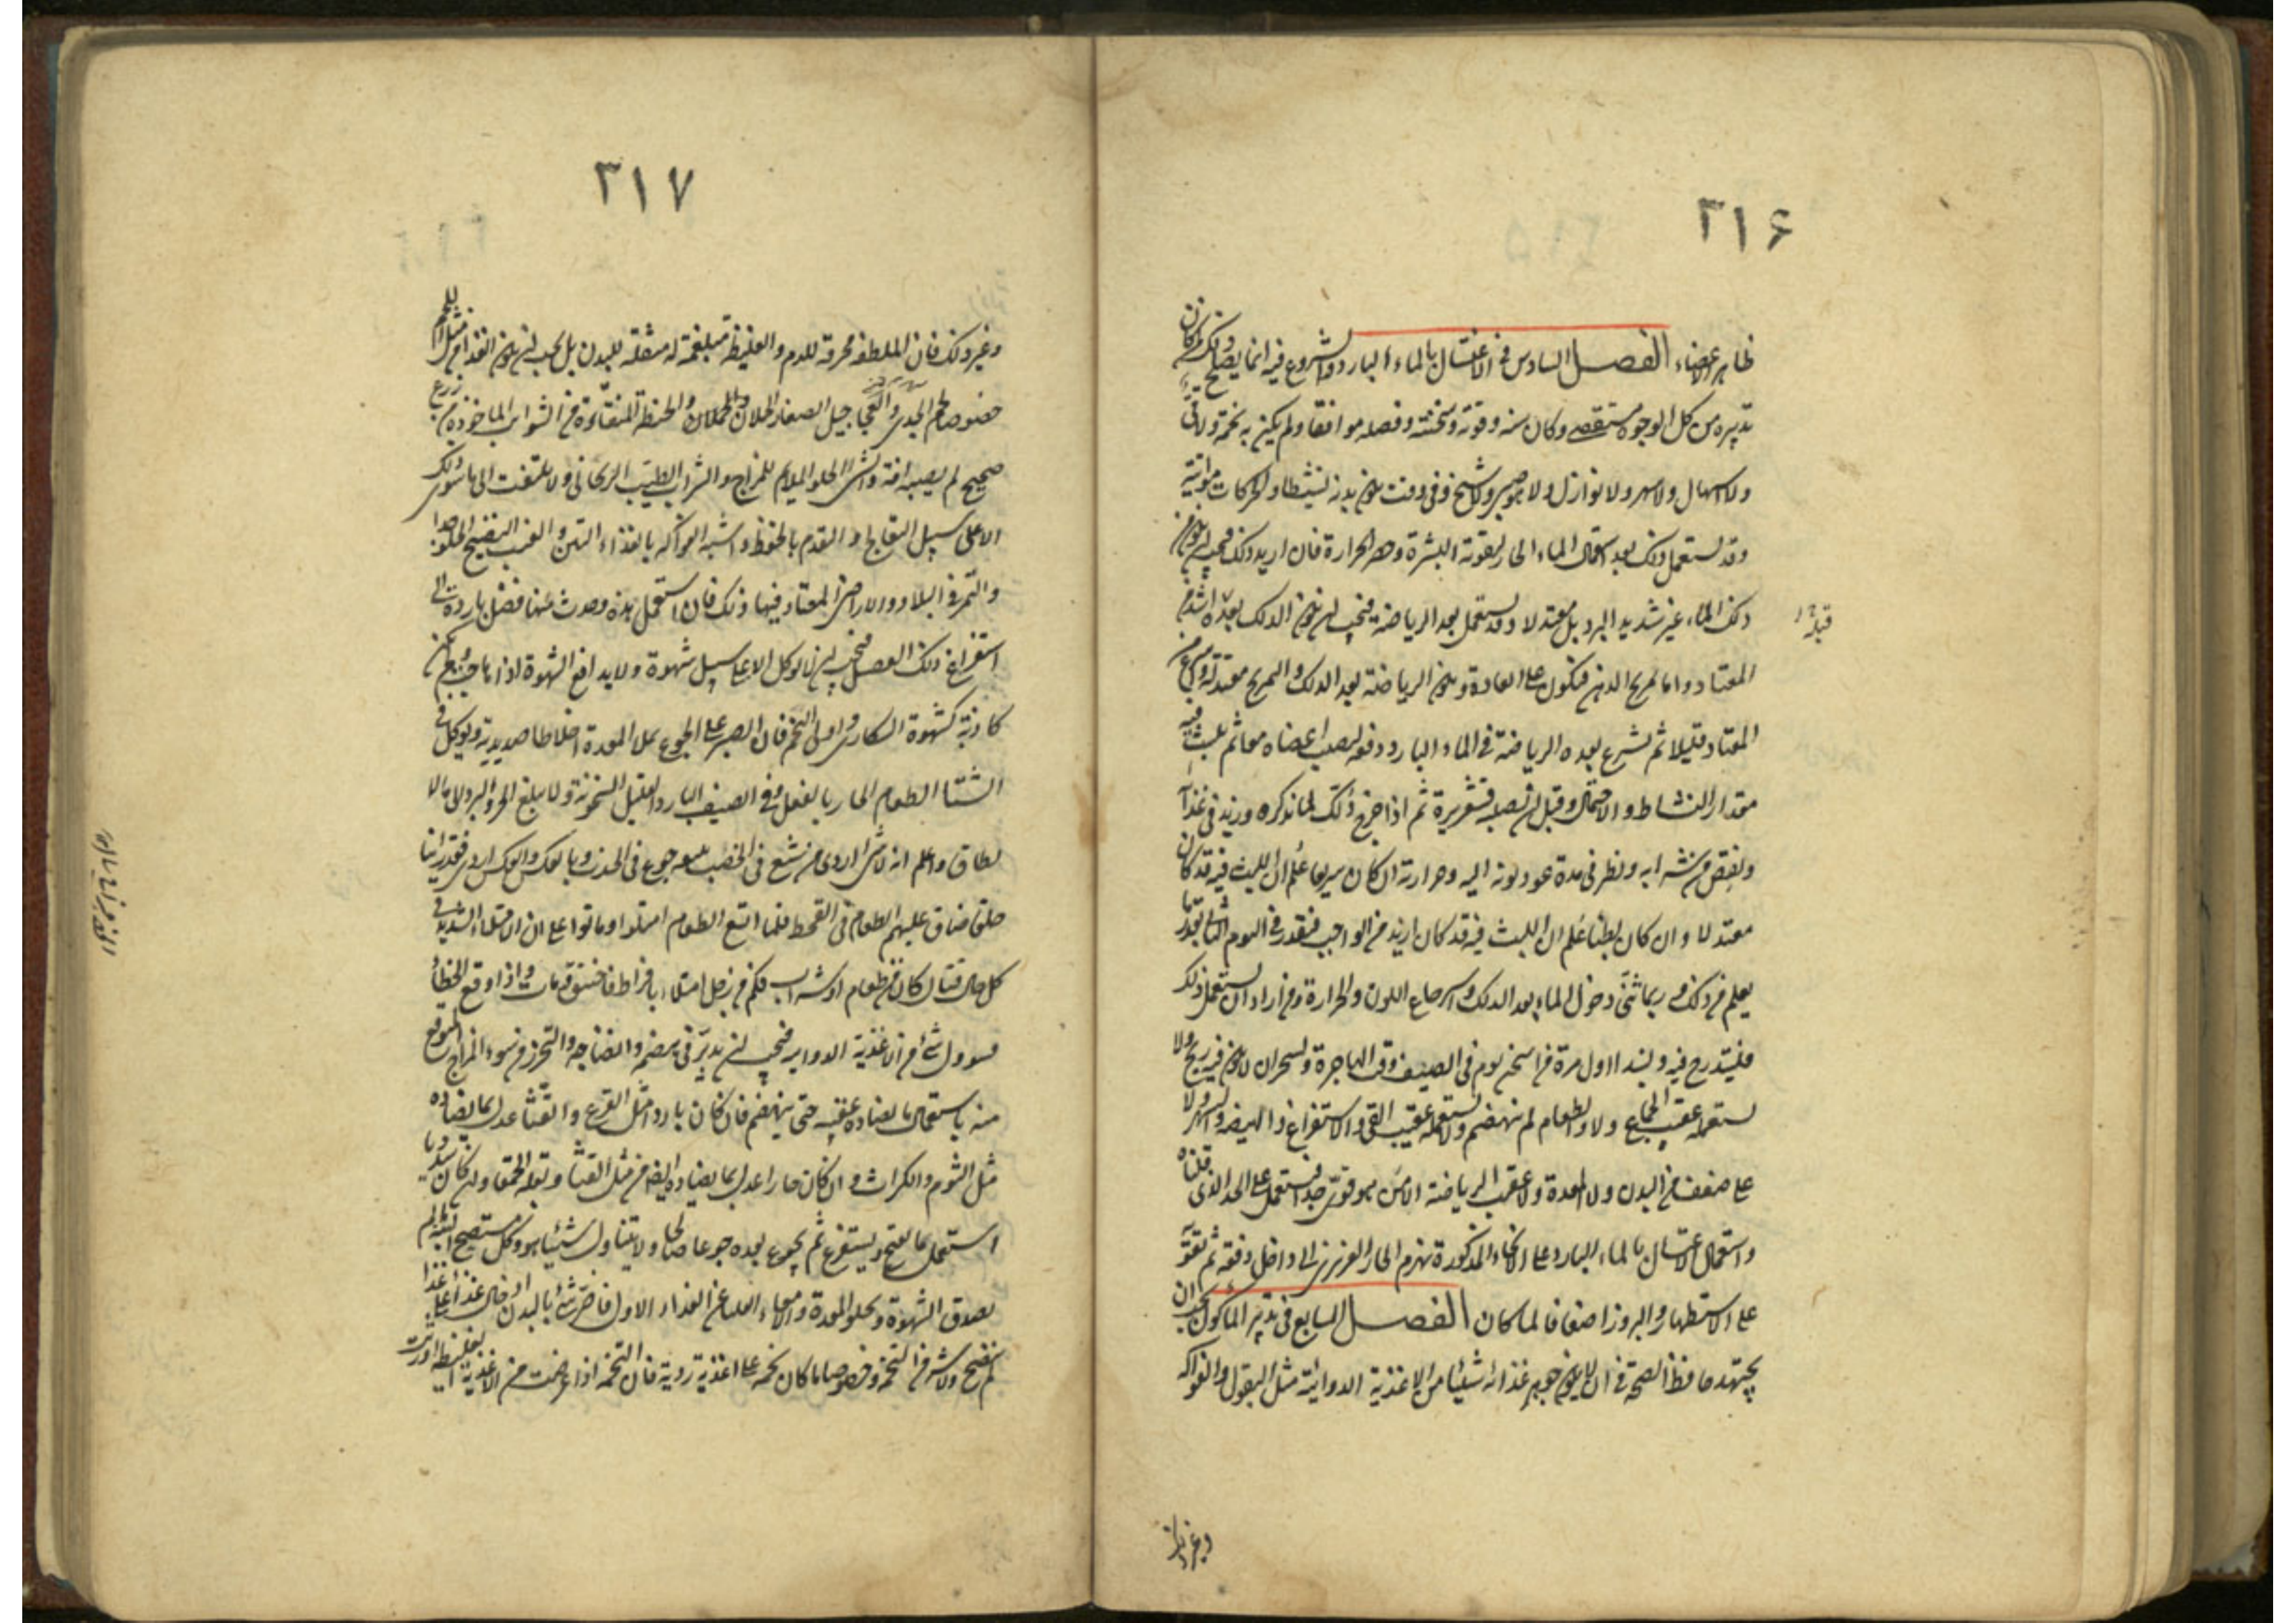 ٣١۶
ظاهر الاعضاء الفصل السادس فى الاغتسال بالماء البارد والشروع فيه انما يصلح ذلك لمن كان
تدبيره من كل الوجوه مستقصى وكان سنه وقوته وسحنته وفصله موافقا ولم يكن به تخمة ولا قىء
ولا اسهال ولا سهر ولا نوازل ولا هو صبى ولا شيخ وفى وقت يكون بدنه نشيطا والحركات مواتية
وقد يستعمل ذلك بعد استعمال الماء الحار لتقوية البشرة وحصر الحرارة فان اريد ذلك فيجب ان يكون
ذلك الماء غير شديد البرد بل معتدلا وقد يستعمل بعد الرياضة فيجب ان يكون الدلك قبله اشد من
المعتاد واما تمريخ الدهن فيكون على العادة ويكون الرياضة بعد الدلك والتمريخ معتدلة واسرع من
المعتاد قليلا ثم يشرع بعده الرياضة فى الماء البارد دفعة ليصيب اعضاه معا ثم يلبث فيه
مقدار النشاط والاحتمال وقبل ان تصيبه قشعريرة ثم اذا خرج ذلك لما نذكره وزيد فى غذائه
ونقص من شرابه ونظر فى مدة عود لونه اليه وحرارته ان كان سريعا علم ان اللبث فيه قد كان
معتدلا وان كان بطيئا علم ان اللبث فيه قد كان ازيد من الواجب فيقدر فى اليوم الثانى بقدر ما
يعلم من ذلك وربما ثنى دخول الماء بعد الدلك واسترجاع اللون والحرارة ومن اراد ان يستعمل ذلك
فليتدرج فيه وليبتدا اول مرة من اسخن يوم فى الصيف وقت الهاجرة وليتحر ان لا يكون فيه ريح ولا
يستعمله عقيب الجماع ولا والطعام لم ينهضم ولا يستعمله عقيب القى والاستفراغ والهيضة والسهر ولا
على ضعف من البدن ولا المعدة ولا عقيب الرياضة الا لمن هو قوى جدا فيستعمل على الحد الذى قلناه
واستعمال الاغتسال بالماء البارد على الانحاء المذكورة يهزم الحار الغريزى الى داخل دفعة ثم تقويه
على الاستظهار والبروز اضعافا لما كان الفصل السابع فى تدبير الماكول يجب ان
يجتهد حافظ الصحة فى ان لا يكون جوهر غذائه شيئا من الاغذية الدوائية مثل البقول والفواكه
وغير ذلك
٣١٧
وغير ذلك فان الملطفة محرقة للدم والغليظة مبلغمة له مثقلة للبدن بل يجب ان يكون الغذاء من مثل اللحم
خصوصا لحم الجدى والعجاجيل الصغار والحملان والحنطة المنقاوة من الشوائب الماخوذة من زرع
صحيح لم يصبه افة والشىء الحلو الملايم للمزاج والشراب الطيب الريحانى ولا يلتفت الى ما سوى ذلك
الا على سبيل التعالج والتقدم بالحفظ واشبه الفواكه بالغذاء التين والعنب النضيج الحلو جدا
والتمر فى البلاد والاراضى المعتاد فيها ذلك فان استعمل هذه وحدث منها فضل بادر الى
استفراغ ذلك الفضل فيجب ان لا يوكل الا على سبيل شهوة ولا يدافع الشهوة اذا هاجت ولم يكن
كاذبة كشهوة السكارى واولى التخم فان الصبر على الجوع يملا المعدة اخلاطا صديدية ويوكل فى
الشتا الطعام الحار بالفعل وفى الصيف البارد القليل السخونة ولا يبلغ الحر والبرد الى ما لا
يطاق واعلم انه لا شى اردى من شبع فى الخصب يتبعه جوع فى الجدب وبالعكس والعكس اردى فقد راينا
خلقا ضاق عليهم الطعام فى القحط فلما اتسع الطعام امتلوا وماتوا على ان الامتلاء الشديد فى
كل حال قتال كان من طعام او شراب فكم من رجل امتلا بافراط فاختنق ومات واذا وقع الخطا
فتنوول شىء من الاغذية الدوايية فيجب ان يدبر فى هضمه وانضاجه والتحرز من سوء المزاج المتوقع
منه باستعمال ما يضاده عقيبه حتى ينهضم فان كان باردا مثل القرع والقثا عدل بما يضاده
مثل الثوم والكراث وان كان حارا عدل بما يضاده ايضا من مثل القثا وبقلة الحمقا وان كان سدديا
استعمل ما يفتح ويستفرغ ثم يجوع بعده جوعا صالحا ولا يتناول شيئا هو وكل مستصح البتة ما لم
يصدق الشهوة وتخلو المعدة والامعاء العليا عن الغذاء الاول فاضر شىء بالبدن ادخال غذا على غذا
لم ينضج ولا شر من التخمة وخصوصا ما كان تخمة على اغذية ردية فان التخمة اذا عرضت من الاغذية الغليظة اورثت